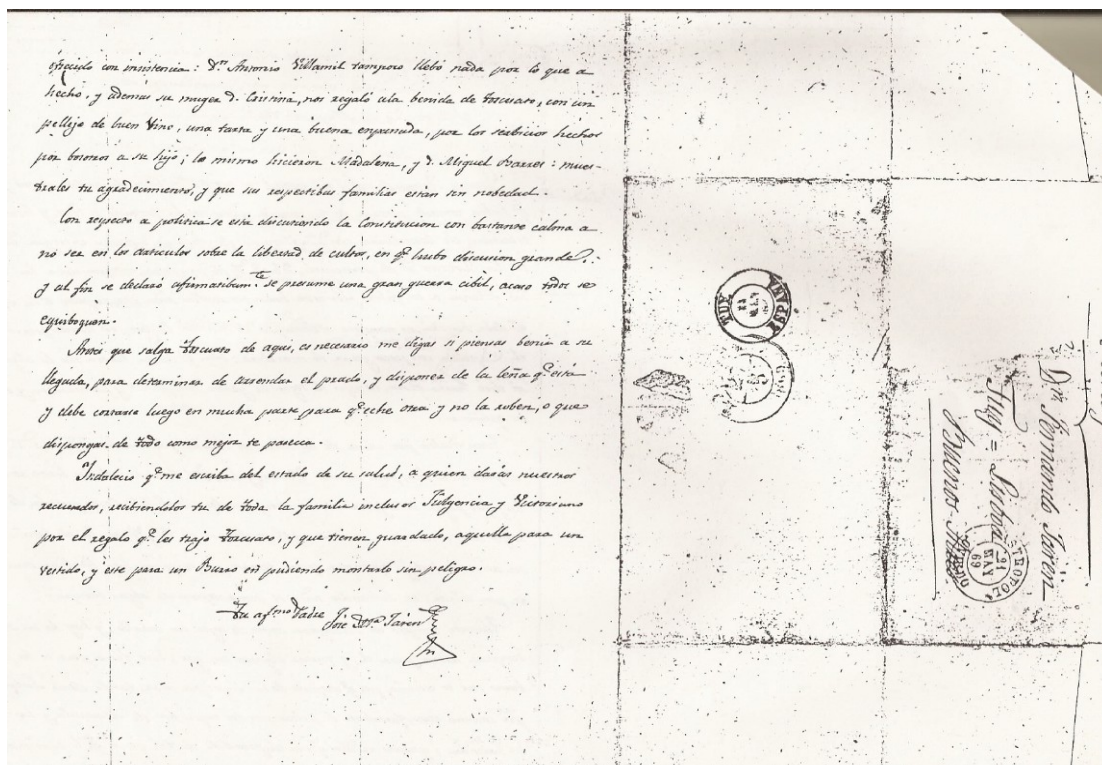 ofrecido con insistencia: Dn. Antonio Villamil tampoco llebó nada por lo que a
hecho, y además su muger d. Cristina, nos regaló ala benida de Torcuato, con un
pellejo de buen vino, una tarta y una buena empanada, por los serbicios hechos
por bosotros a su hijo; lo mismo hicieron Madalena, y d. Miguel Barres: mues-
trales tu agradecimiento, y que sus respectibas familias estan sin nobedad.
Con respecto a politica se está discutiendo la Constitucion con bastante calma a
no ser en los articulos sobre la libertad de cultos, en q.e hubo discusion grande:
y al fin se declaró afirmatibam.te se presume una gran guerra cibil, acaso todos se
equiboquen.
Antes que salga Torcuato de aqui, es necesario me digas si piensas benir a su
llegada, para determinar de arrendar el prado, y disponer de la leña q.e está
y debe cortarse luego en mucha parte para q.e eche otra y no la roben, o que
dispongas de todo como mejor te parezca.
Indalecio q.e me escriba del estado de su salud, a quien darás nuestros
recuerdos, recibiendolos tu de toda la familia inclusos Fulgencia y Victoriano
por el regalo q.e les trajo Torcuato, y que tienen guardado, aquella para un
vestido, y este para un Burro en pudiendo montarlo sin peligro.
Tu af.mo Padre
José M.a Jaren
TUY
ESPAÑA
Dn Fernando Jaren
Tuy = Lisboa
Buenos Aires
CASTROPOL
16 MAY 69
OVIEDO